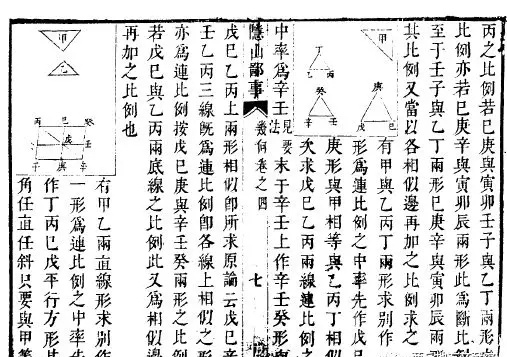 丙之比例若巳庚與寅卯壬子與乙丁兩形
比例亦若巳庚辛與寅卯辰兩形此爲斷比
至于壬子與乙丁兩形巳庚辛與寅卯辰兩
其比例又當以各相似邊再加之比例求之
甲
庚
丁
乙丙
癸
辛壬
有甲與乙丙丁兩形求別作
形爲連比例之中率先作戊巳
庚形與甲相等與乙丙丁相似
次求戊巳乙丙兩線連比例之
中率爲辛壬見要法末于辛壬上作辛壬癸形
隱山鄙事
幾何卷之四
七
戊巳乙丙上兩形相似卽所求原論云戊巳辛
壬乙丙三線旣爲連比例卽各線上相似之形
亦爲連比例按戊巳庚與辛壬癸兩形之比例
若戊巳與乙丙兩底線之比例此又爲相似邊
再加之比例也
甲
乙
丙巳癸
戊壬
子庚辛
有甲乙兩直線形求別作
一形爲連比例之中率先
作丁丙巳戊平行方形
角任直任斜只要與甲等